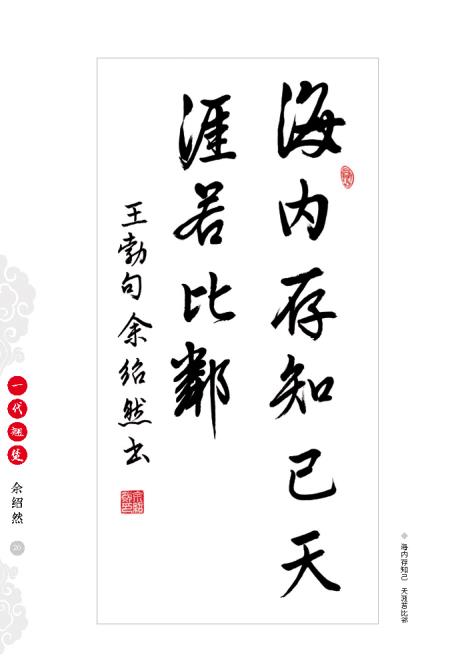 海内存知己天
涯若比鄰
王勃句 余绍然书
一代翘楚
余绍然
20
海内存知己 天涯若比邻